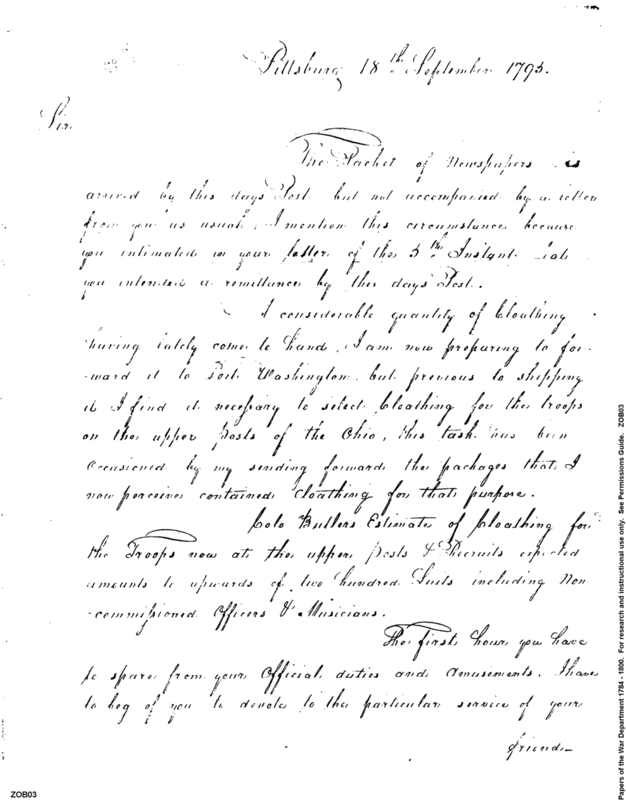 Pittsburg 18th September 1795.
Sir
The Packet of Newspapers is
arrived by this days Post but not accompanied by a letter
from you as usual, I mention this circumstance because
you intimated in your letter of the 5th Instant that
you intended a remittance by this days Post.
A considerable quantity of Cloathing
having lately come to hand, I am now preparing to for-
ward it to Fort Washington, but previous to shipping
it I find it necessary to select Cloathing for the troops
on the upper posts of the Ohio, this task has been
occasioned by my sending forward the packages that I
now perceive contained cloathing for that purpose.
Colo Butlers Estimate of Cloathing for
the Troops now at the upper posts & Recruits expected
amounts to upwards of two hundred Suits including Non
commissioned Officers & Musicians.
The first hour you have
to spare from your Official duties and amusements, I have
to beg of you to devote to the particular service of your
friend
ZOB03
Papers of the War Department 1784 - 1800. For research and instructional use only. See Permissions Guide. ZOB03